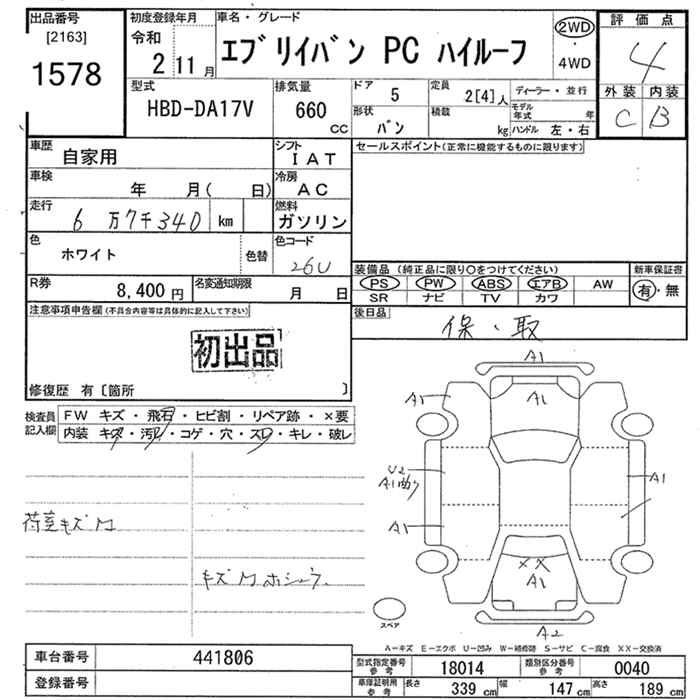 出品番号
[2163]
1578
初度登録年月
令和
2 11月
車名・グレード
エブリイバン PC ハイルーフ
2WD
・
4WD
評価点
4
外装 内装
C B
型式
HBD-DA17V
排気量
660
CC
ドア 5
形状 バン
定員 2[4]人
積載 kg
ディーラー・並行
モデル年式 年
ハンドル 左・右
車歴 自家用
シフト
IAT
車検 年 月( 日)
冷房
AC
走行 6万7千340 km
燃料
ガソリン
色 ホワイト
色替
色コード
26U
R券 8,400円
名変通知期限 月 日
セールスポイント(正常に機能するものに限ります)
装備品 (純正品に限り○をつけてください)
PS PW ABS エアB AW
SR ナビ TV カワ
新車保証書
有・無
後日品
保・取
注意事項申告欄(不具合内容等は具体的に記入して下さい)
初出品
修復歴 有〔箇所 〕
検査員記入欄
FW キズ・飛石・ヒビ割・リペア跡・×要
内装 キズ・汚れ・コゲ・穴・スレ・キレ・破レ
荷室キズM
キズMホシュウ
A1
A1
A1
U2
A1
A1
A1
XX
A1
A2
スペア
A-キズ E-エクボ U-凹み W-補修跡 S-サビ C-腐食 XX-交換済
車台番号 441806
登録番号
型式指定番号参考 18014
類別区分番号参考 0040
車庫証明用参考 長さ 339cm 幅 147cm 高さ 189cm